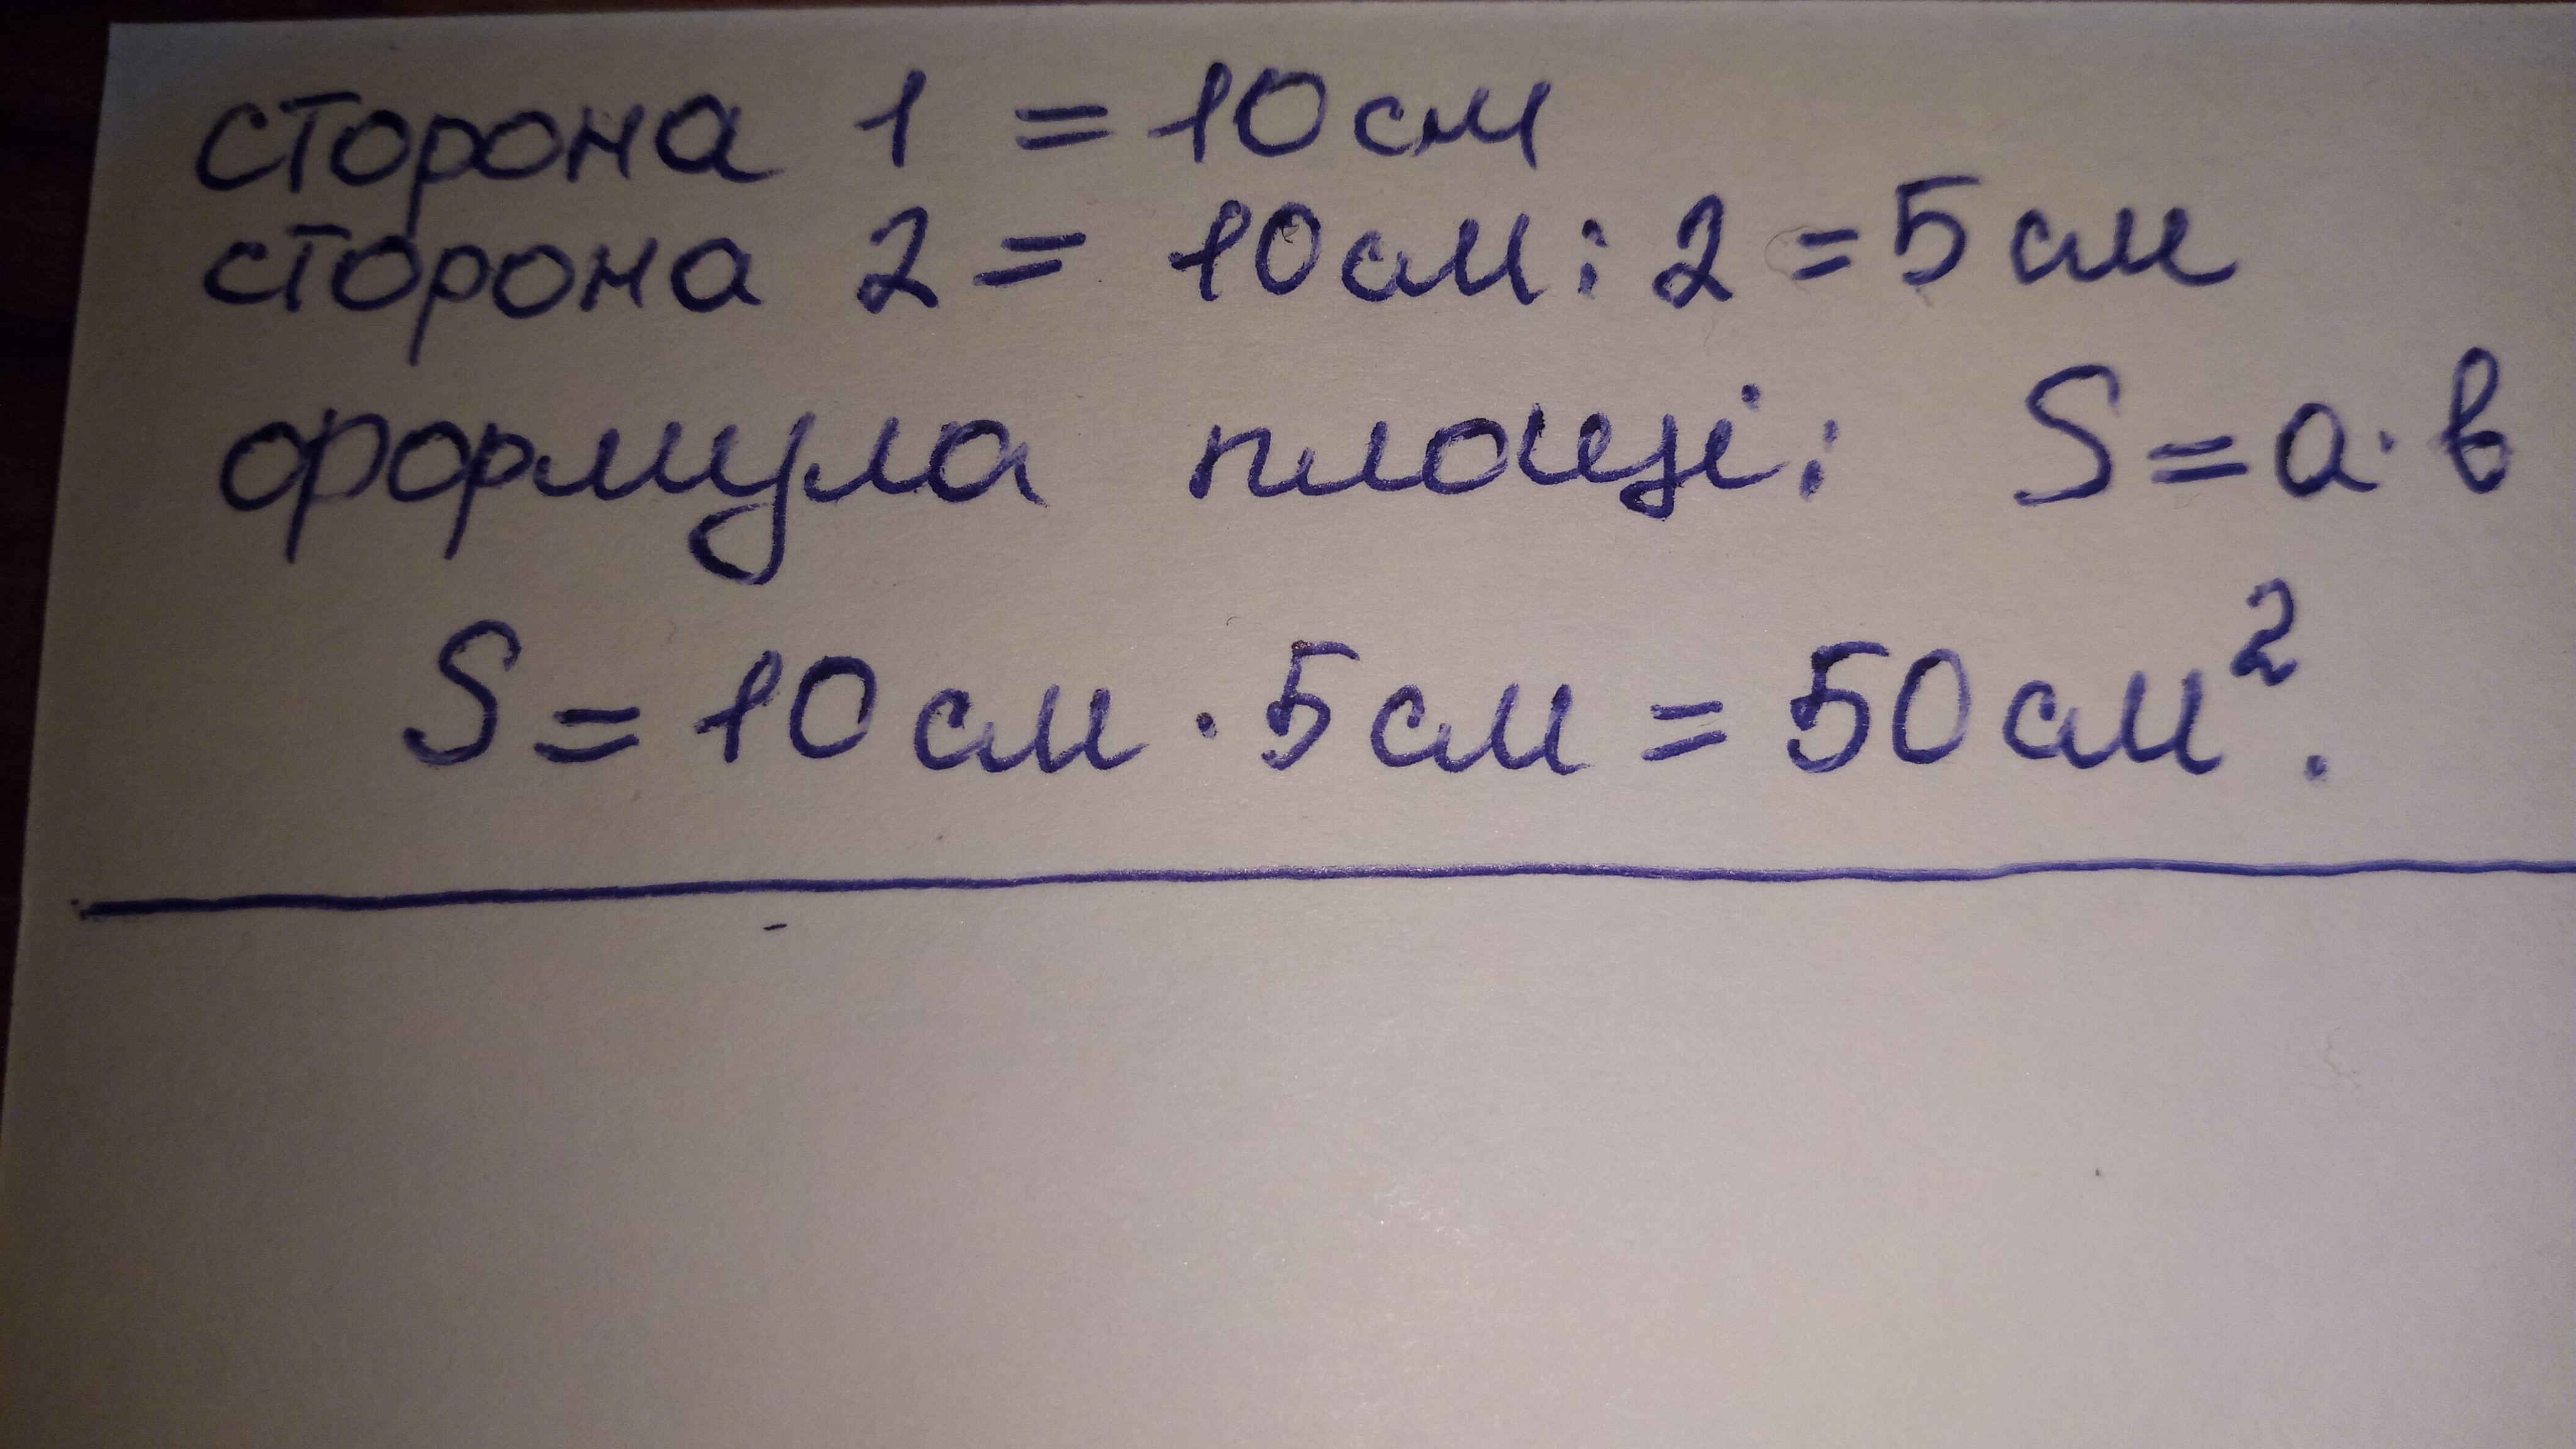 сторона 1 = 10 см
сторона 2 = 10 см : 2 = 5 см
формула площі: S = a · в
S = 10 см · 5 см = 50 см².